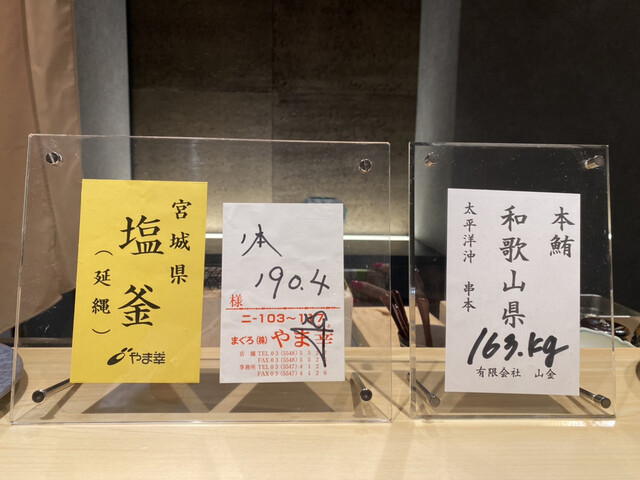 宮城県
塩釜
(延縄)
やま幸
本
190.4
様
ニ-103~107
まぐろ(株)やま幸
店舗 TEL 03
FAX 03
事務所 TEL 03
FAX 03
本鮪
和歌山県
太平洋沖 串本
163.kg
有限会社 山金